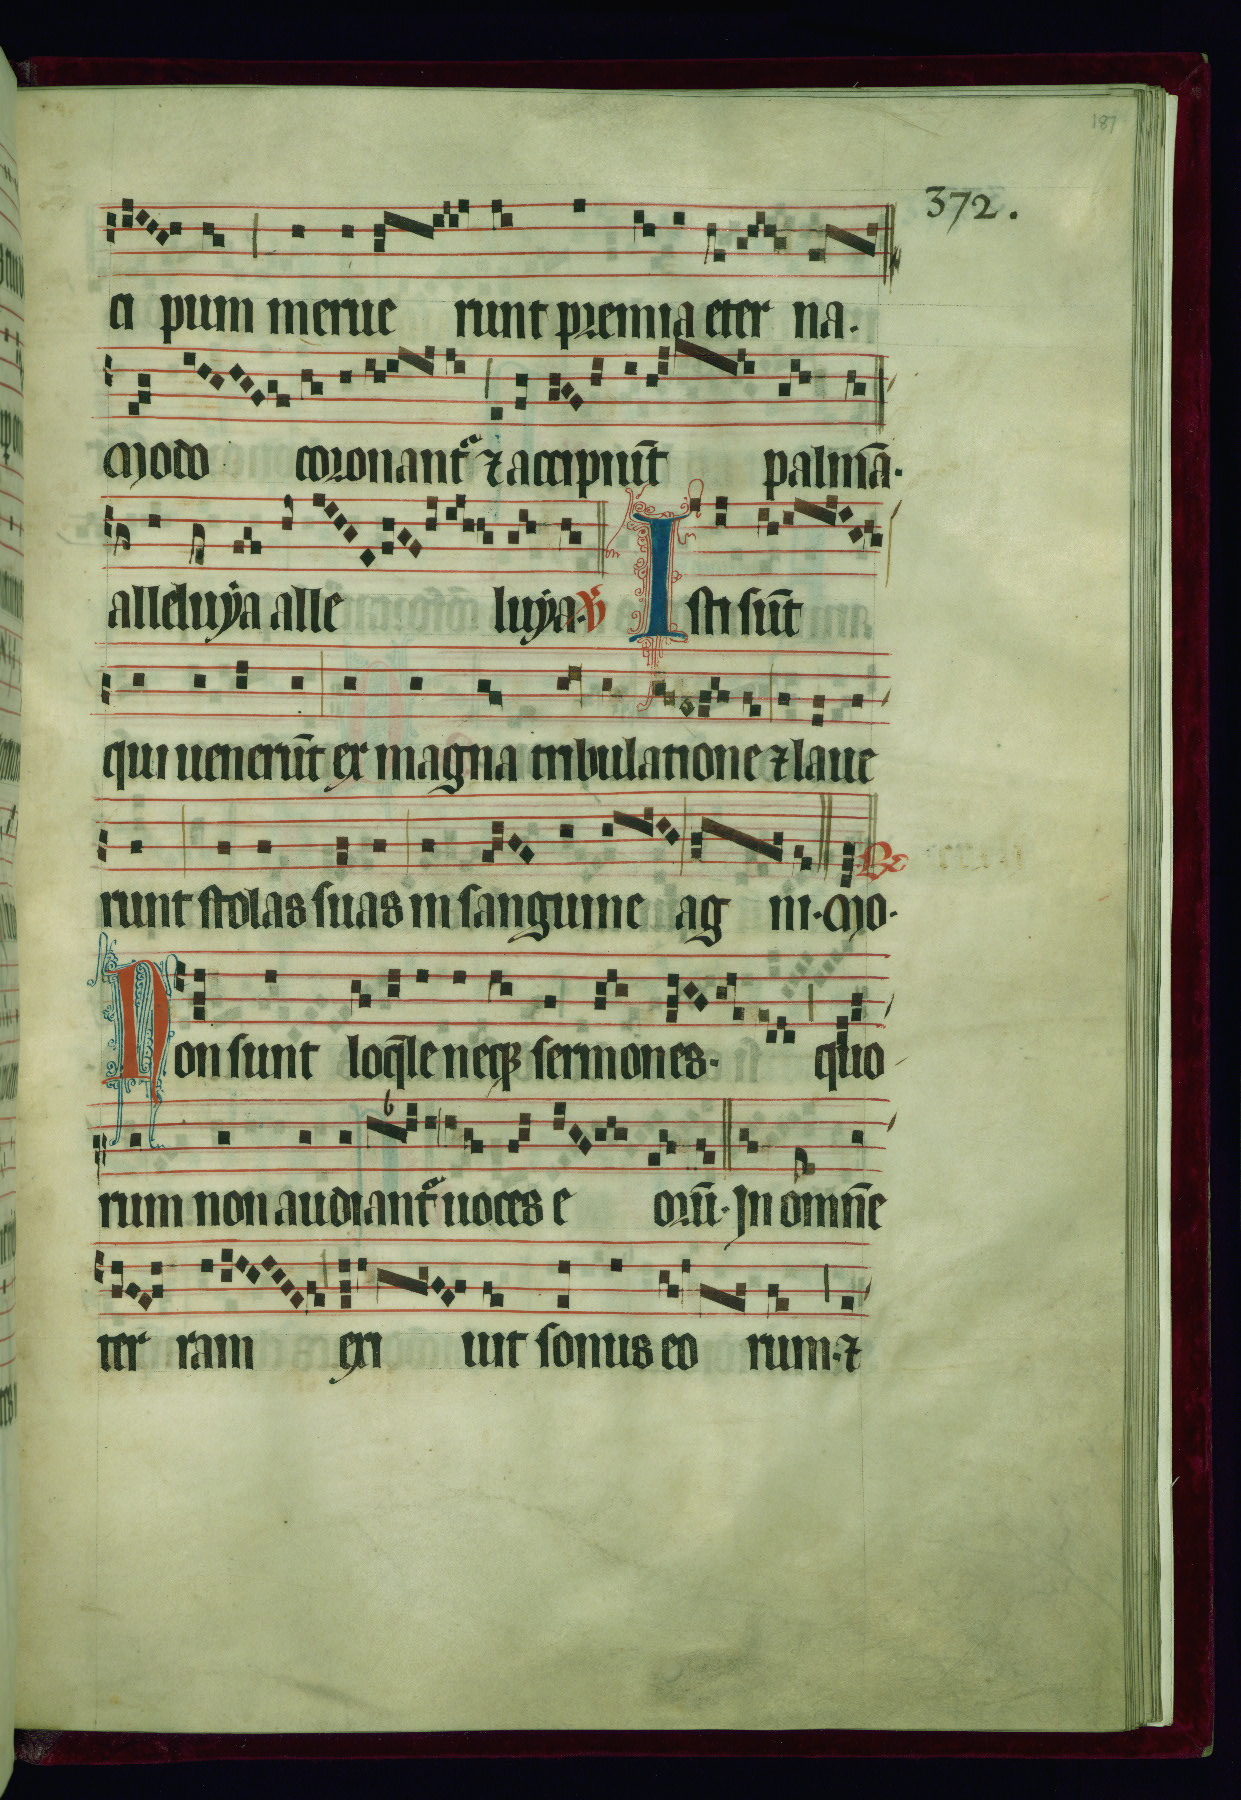 187
372.
ci pum merue runt premia eter na.
Modo coronantr̃ ⁊ accipiũt palmã.
alleluẏa alle luẏa. ℣ Isti sũt
qui uenerũt ex magna tribulatione ⁊ laue
runt stolas suas in sanguine ag ni. Mo.
Non sunt loq̃le neqꝫ sermones. quo
rum non audiantr̃ uoces e orũ. In omñe
ter ram exi uit sonus eo rum. ⁊